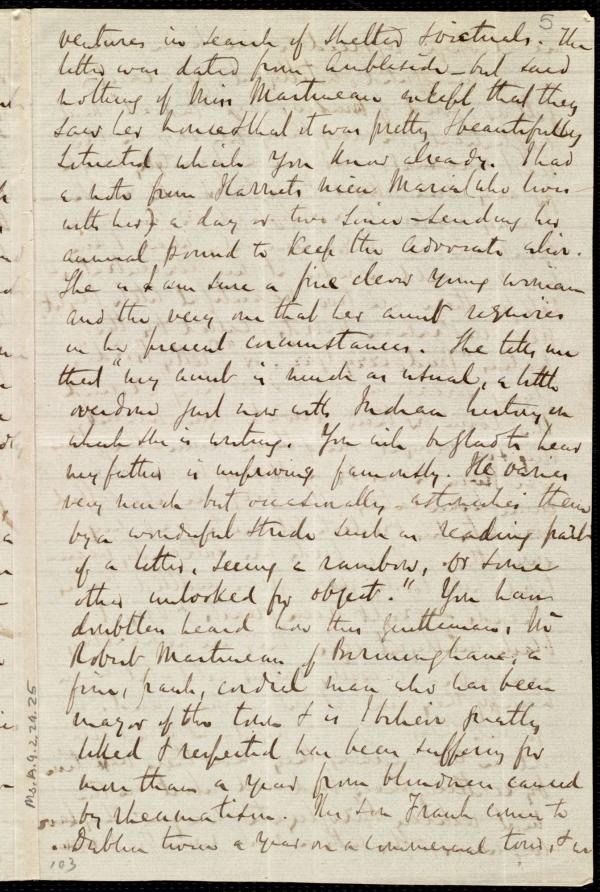 5
ventures in search of shelter & victuals. The
letter was dated from Ambleside - but said
nothing of Miss Martineau except that they
saw her house & that it was pretty & beautifully
situated which you know already. I had
a note from Harriets niece Maria (who lives
with her) a day or two since - sending her
annual pound to keep the Advocate alive.
She is I am sure a fine clever young woman
and the very one that her aunt requires
in her present circumstances. She tells me
that "my aunt is much as usual, a little
overdone just now with Indian history on
which she is writing. You will be glad to hear
my father is improving famously. He varies
very much but occasionally astonishes them
by a wonderful stride such as reading part
of a letter, seeing a rainbow, or some
other unlooked for object." You have
doubtless heard how this gentleman, Mr
Robert Martineau of Birmingham, a
fine, frank, cordial man who has been
mayor of the town & is I believe greatly
liked & respected has been suffering for
more than a year from blindness caused
by rheumatism. His son Frank comes to
Dublin twice a year on a commercial tour, &
Ms.A.9.2.29.25
103